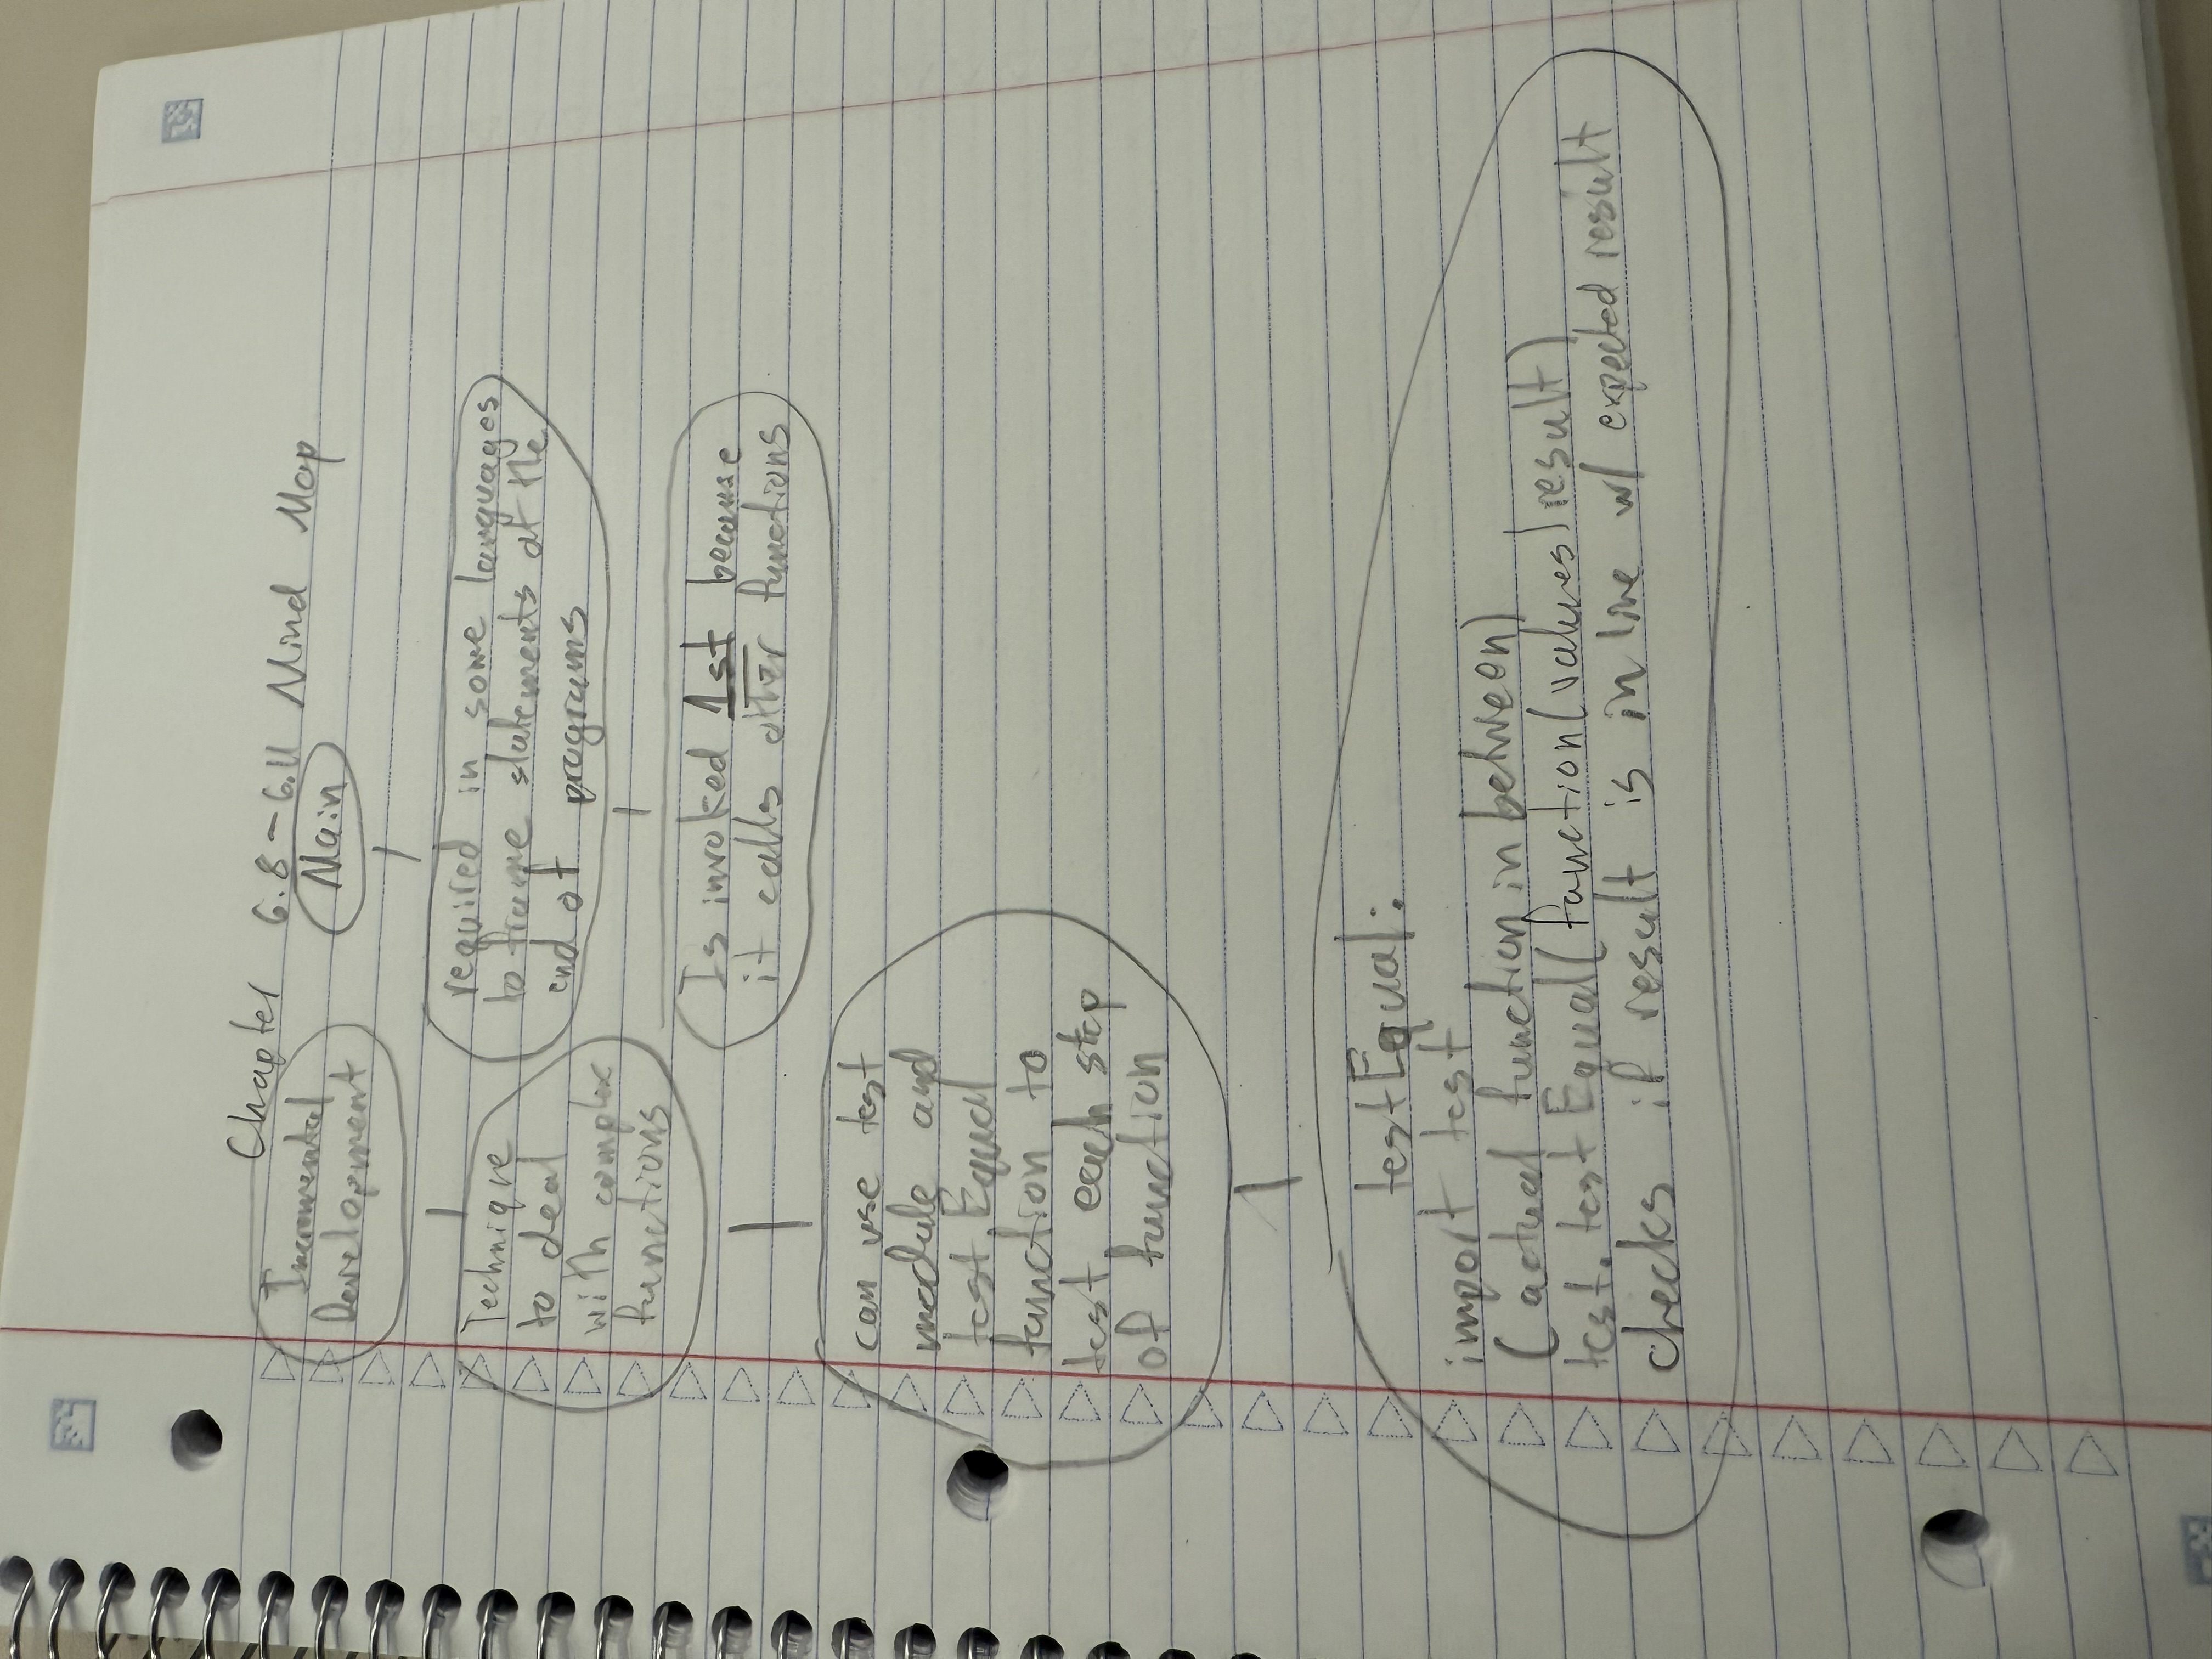 Chapter 6.8-6.11 Mind Map
Incremental
Development
Technique
to deal
with complex
functions
can use test
module and
test.Equal
function to
test each step
of function
testEqual:
import test
(actual function in between)
test.testEqual(function(values) result)
checks if result is in line w/ expected result
Main
required in some languages
to frame statements at the
end of programs
Is invoked 1st because
it calls other functions